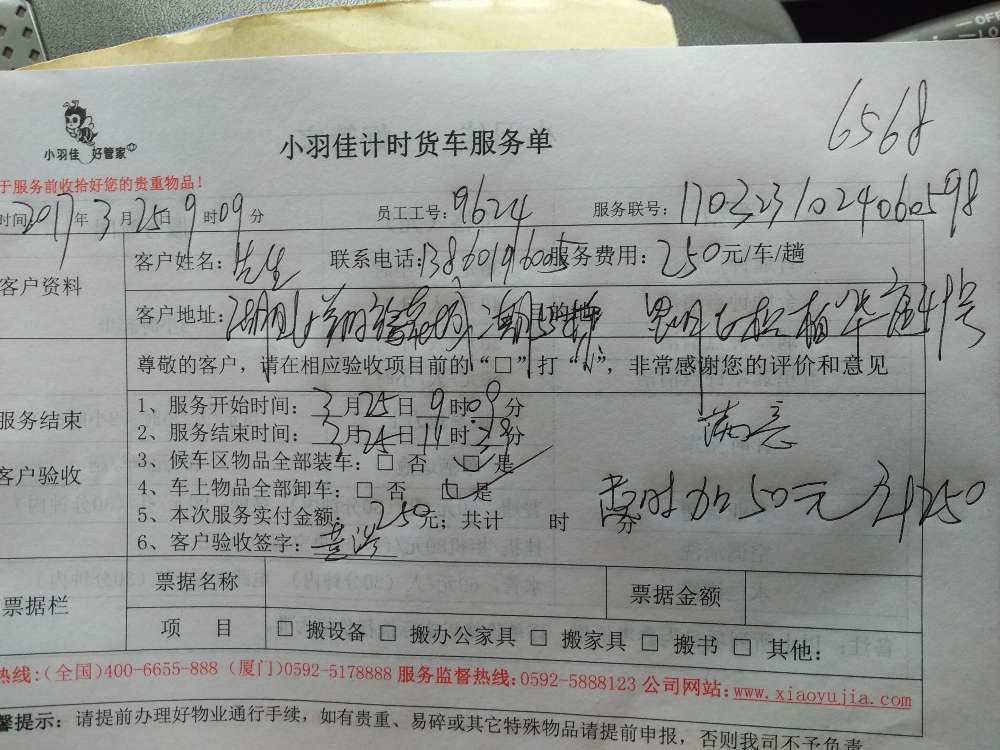 OFF
LO
6568
小羽佳 好管家
小羽佳计时货车服务单
于服务前收拾好您的贵重物品！
时间：2017年3月25日9时09分 员工工号：9624 服务联号：1703231024060598
客户资料
客户姓名：先生 联系电话：13860196005 服务费用：250元/车/趟
客户地址：
尊敬的客户，请在相应验收项目前的“□”打“√”，非常感谢您的评价和意见
服务结束
客户验收
1、服务开始时间：3月25日9时09分
2、服务结束时间：3月25日11时39分
满意
3、候车区物品全部装车：□ 否 □ 是
4、车上物品全部卸车：□ 否 □ 是
5、本次服务实付金额：250元；共计 时 分
超时加50元
6、客户验收签字：
票据栏
票据名称 票据金额
项 目 □ 搬设备 □ 搬办公家具 □ 搬家具 □ 搬书 □ 其他：
热线：(全国)400-6655-888 (厦门)0592-5178888 服务监督热线：0592-5888123 公司网站：www.xiaoyujia.com
馨提示：请提前办理好物业通行手续，如有贵重、易碎或其它特殊物品请提前申报，否则我司不予负责